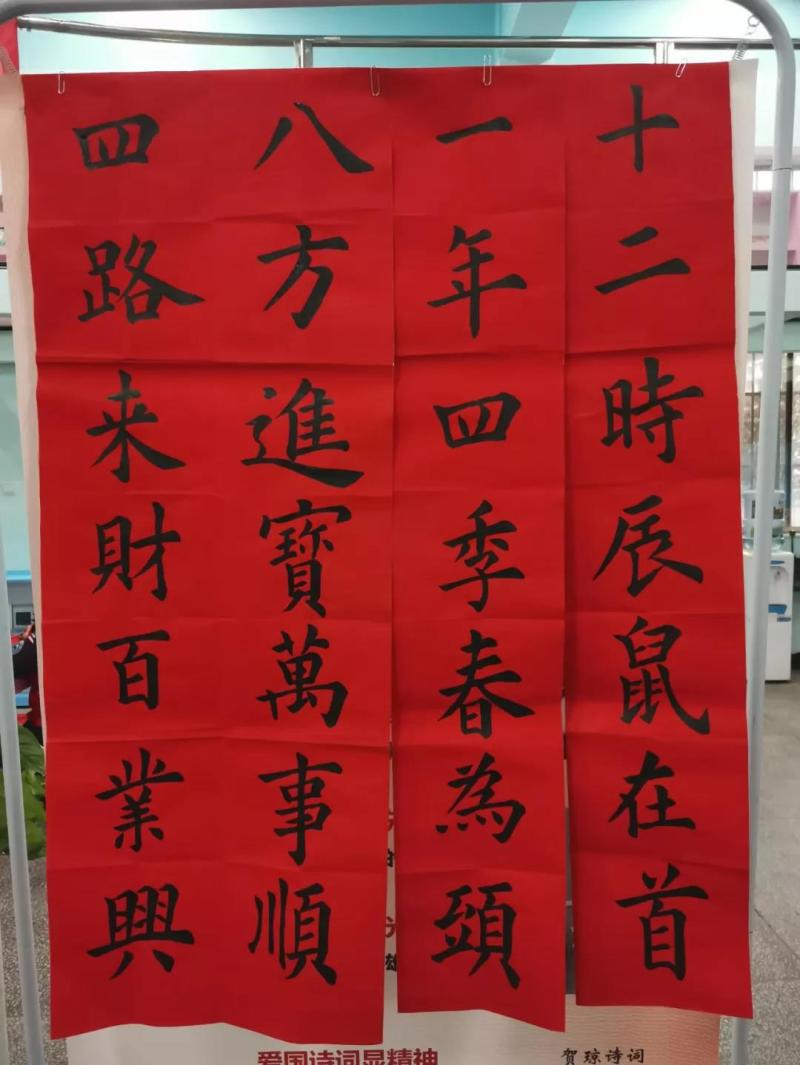 十二時辰鼠在首
一年四季春為頭
八方進寶萬事順
四路来財百業興
爱国诗词显精神
贺琼诗词